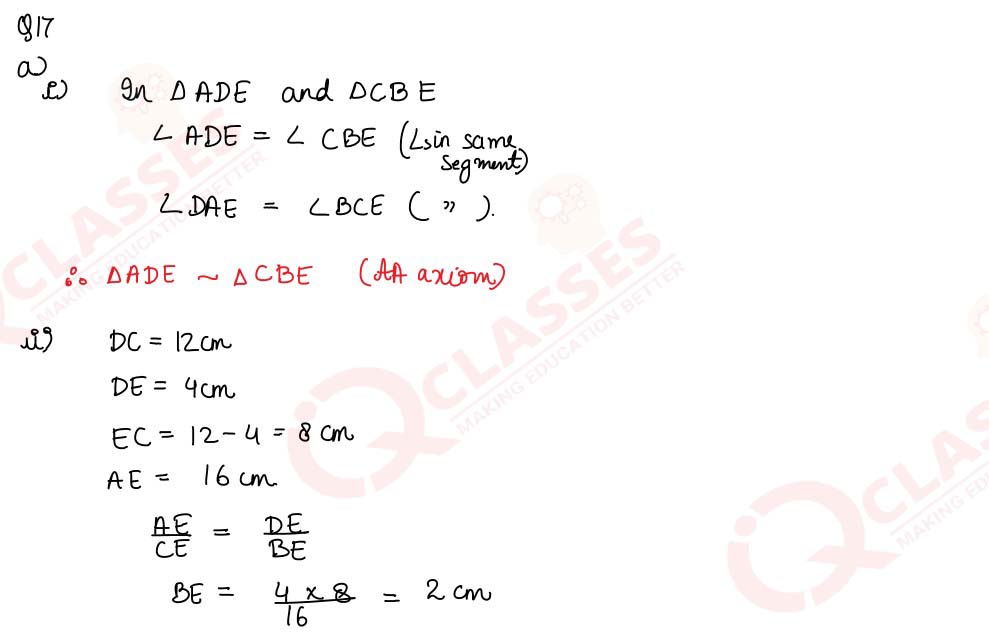 Q17
a)
i) In Δ ADE and ΔCBE
∠ ADE = ∠ CBE (∠s in same segment)
∠DAE = ∠BCE ( " ).
∴ ΔADE ~ ΔCBE (AA axiom)
ii) DC = 12cm
DE = 4cm
EC = 12 - 4 = 8 cm
AE = 16 cm
AE/CE = DE/BE
BE = 4 x 8/16 = 2 cm
CLASSES
MAKING EDUCATION BETTER
CLASSES
MAKING EDUCATION BETTER
CLASSES
MAKING EDU